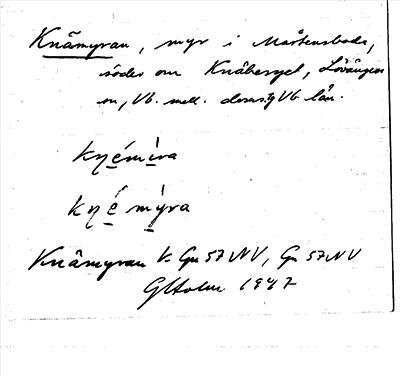 Knämyran, myr i Mårtensboda,
söder om Knäberget, Lövångers
sn, Vb. mell. Vb län.
knémira
kné myra
Knämyran k Gn 57 NV, Gn 57 NV
GHolm 1947